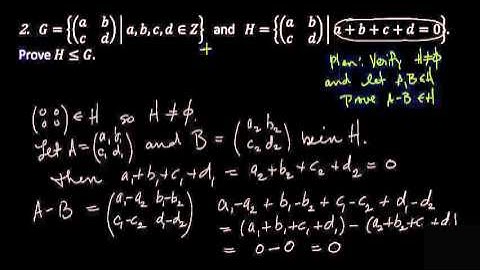 2. G = {(a b / c d) | a, b, c, d ∈ Z} and H = {(a b / c d) | a + b + c + d = 0}.
Prove H ≤ G.
plan: Verify H≠ϕ
and let A,B∈H
Prove A-B ∈H
(0 0 / 0 0) ∈ H so H≠ϕ.
Let A = (a₁ b₁ / c₁ d₁) and B = (a₂ b₂ / c₂ d₂) be in H.
Then a₁+b₁+c₁+d₁ = a₂+b₂+c₂+d₂ = 0
A-B = (a₁-a₂ b₁-b₂ / c₁-c₂ d₁-d₂) a₁-a₂ + b₁-b₂ + c₁-c₂ + d₁-d₂
= (a₁+b₁+c₁+d₁) - (a₂+b₂+c₂+d
= 0-0 = 0